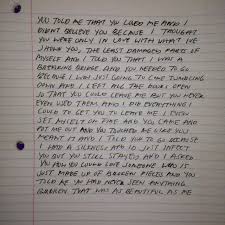 YOU TOLD ME THAT YOU LOVED ME AND I
DIDN'T BELIEVE YOU BECAUSE I THOUGHT
YOU WERE ONLY IN LOVE WITH WHAT I'VE
SHOWN YOU, THE LEAST DAMAGED PARTS OF
MYSELF AND I TOLD YOU THAT I WAS A
BREAKING BRIDGE AND YOU NEEDED TO GO
BECAUSE I WAS JUST GOING TO COME TUMBLING
DOWN AND I LEFT ALL THE DOORS OPEN
SO THAT YOU COULD LEAVE ME BUT YOU NEVER
EVEN USED THEM AND I DID EVERYTHING I
COULD TO GET YOU TO LEAVE ME I EVEN
SET MYSELF ON FIRE AND YOU CAME AND
PUT ME OUT AND YOU TOUCHED ME LIKE YOU
MEANT IT AND I TOLD YOU TO GO BECAUSE
I HAD A SICKNESS AND ID JUST INFECT
YOU BUT YOU STILL STAYED AND I ASKED
YOU HOW YOU COULD LOVE SOMEONE WHO IS
JUST MADE UP OF BROKEN PIECES AND YOU
TOLD ME YOU HAD NEVER SEEN ANYTHING
BROKEN THAT WAS AS BEAUTIFUL AS ME